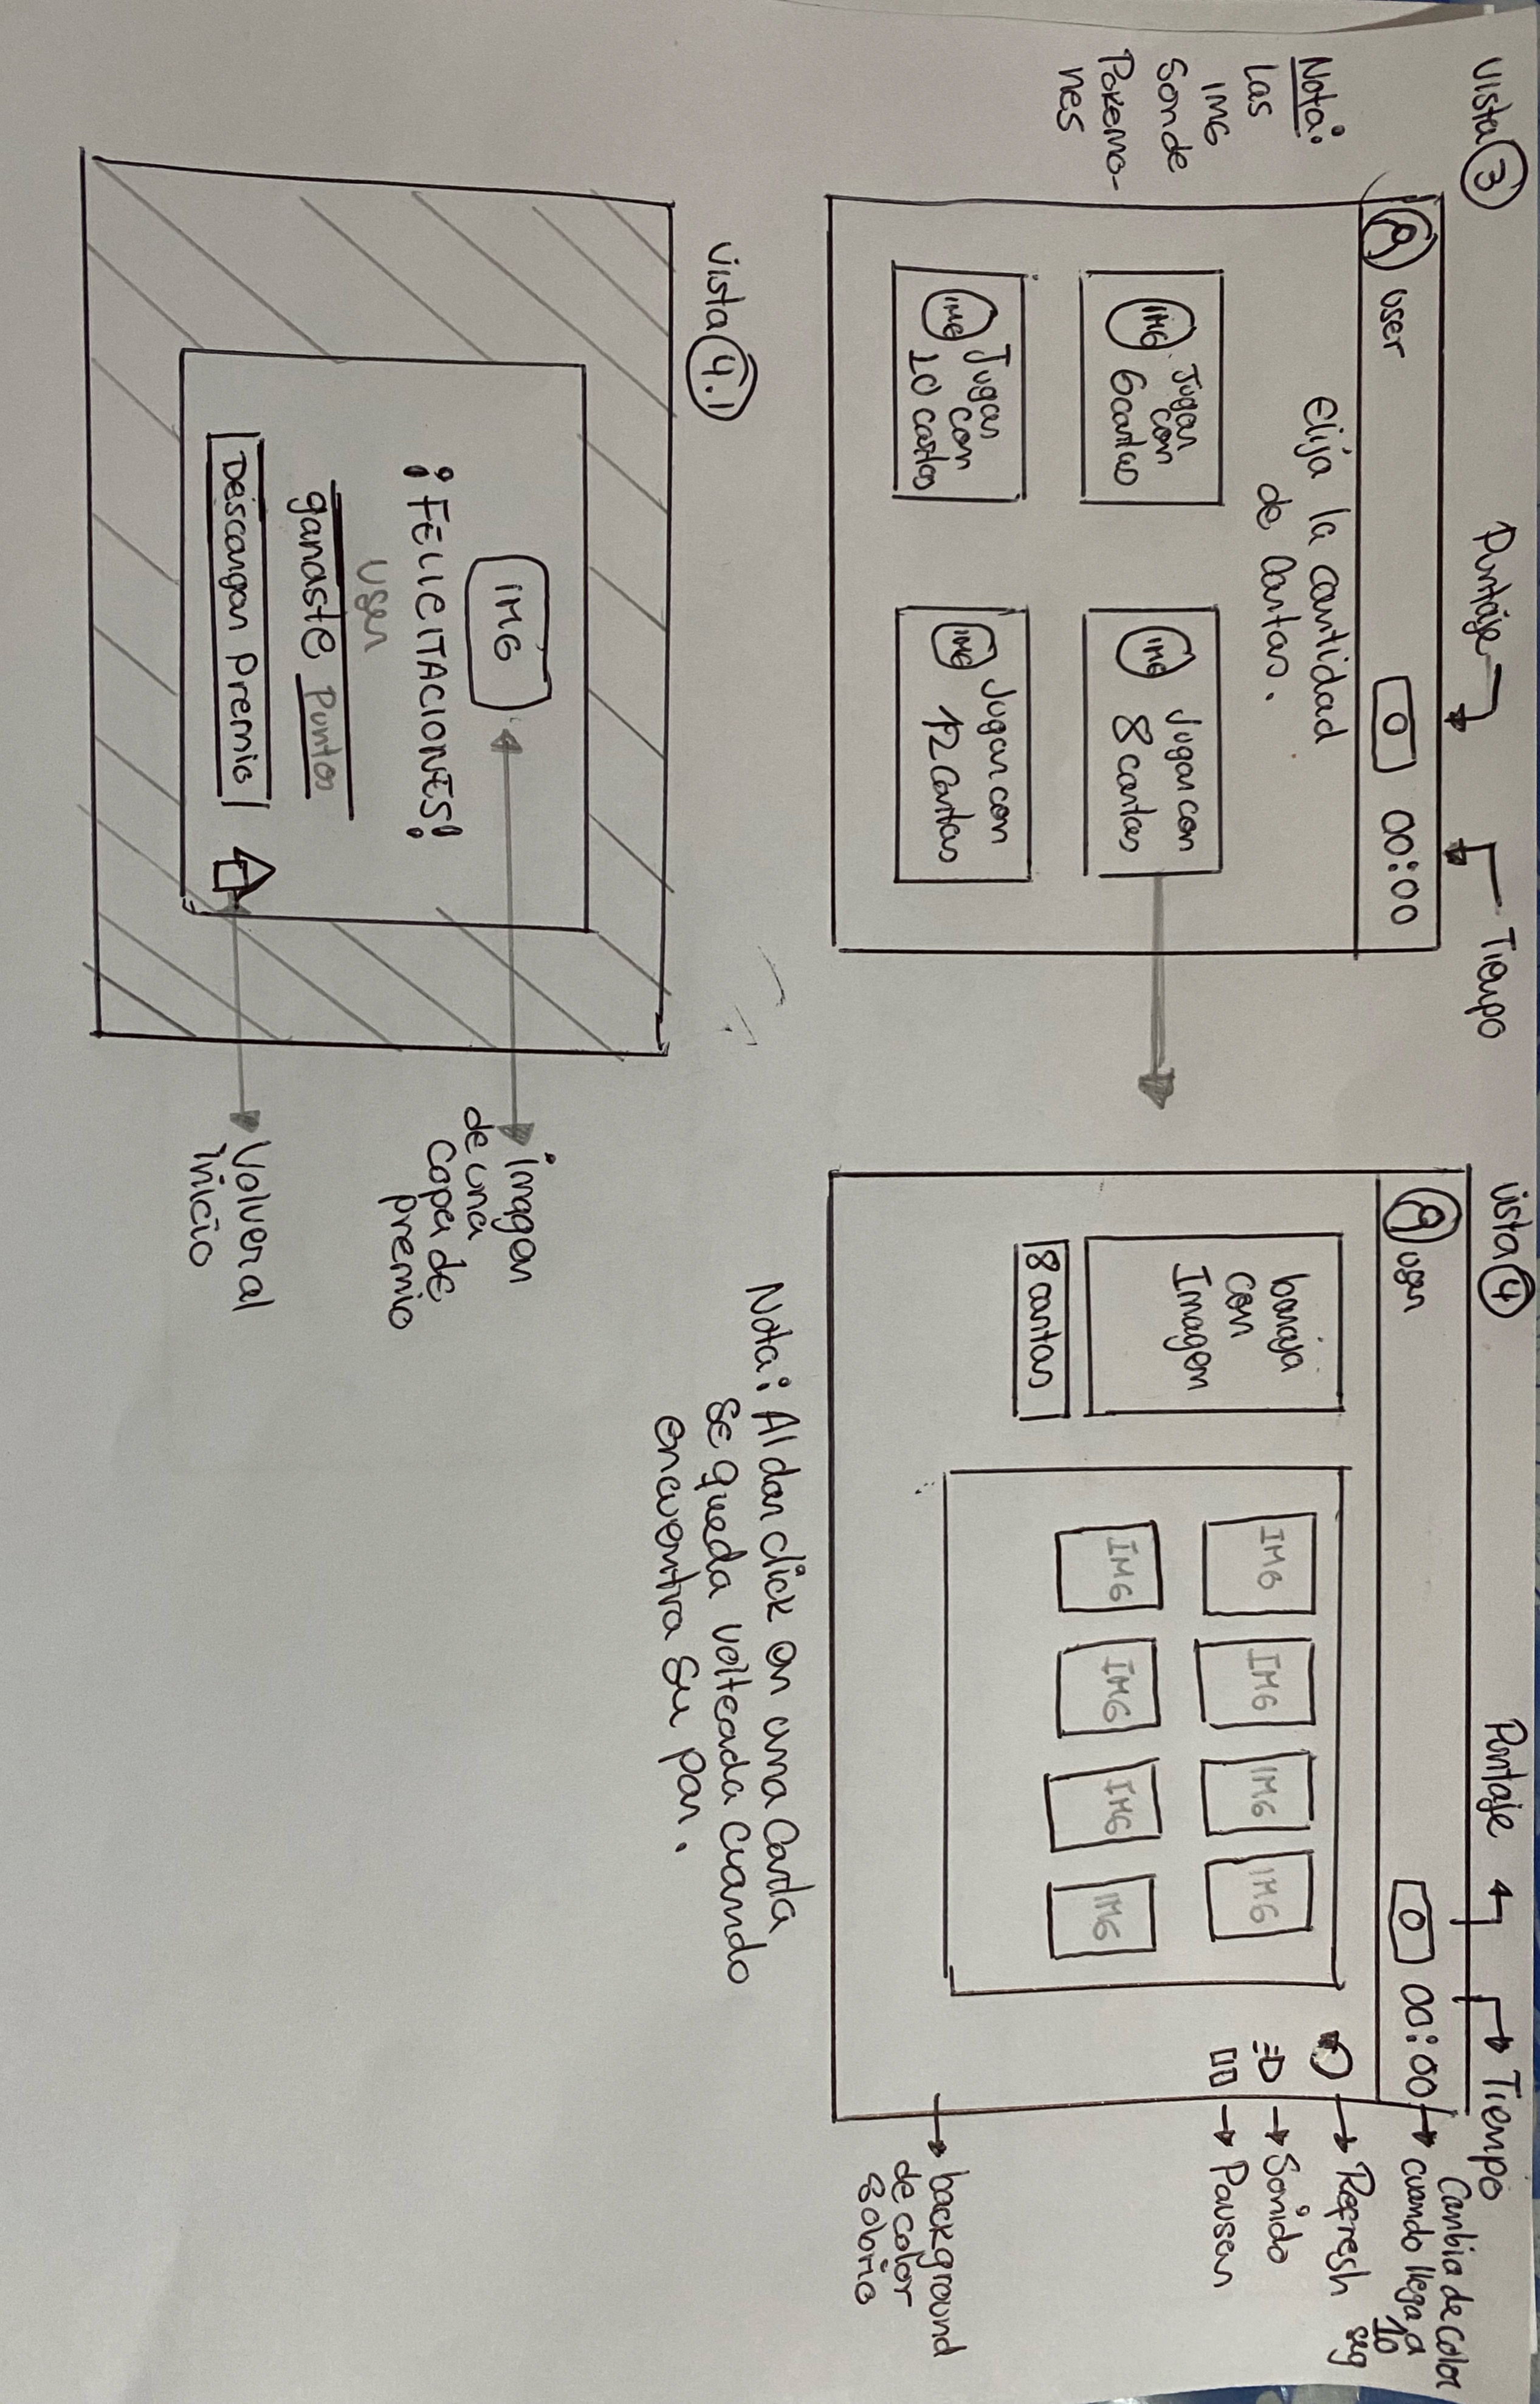 Vista 3
Puntaje
Tiempo
user
0
00:00
Nota:
Las
IMG
Son de
Pokemo-
nes
Elija la cantidad
de Cartas.
IMG
Jugar
con
6 cartas
IMG
Jugar con
8 cartas
IMG
Jugar
con
10 cartas
IMG
Jugar con
12 Cartas
Vista 4
Puntaje
Tiempo
Cambia de color
cuando llega a
10
seg
user
0
00:00
Refresh
Sonido
Pausar
baraja
con
Imagen
8 cartas
IMG IMG IMG IMG
IMG IMG IMG IMG
background
de color
sobrio
Nota: Al dar click en una Carta
se queda volteada cuando
encuentra su par.
Vista 4.1
IMG
imagen
de una
Copa de
premio
¡FELICITACIONES!
User
ganaste Puntos
Descargar Premio
Volver al
inicio